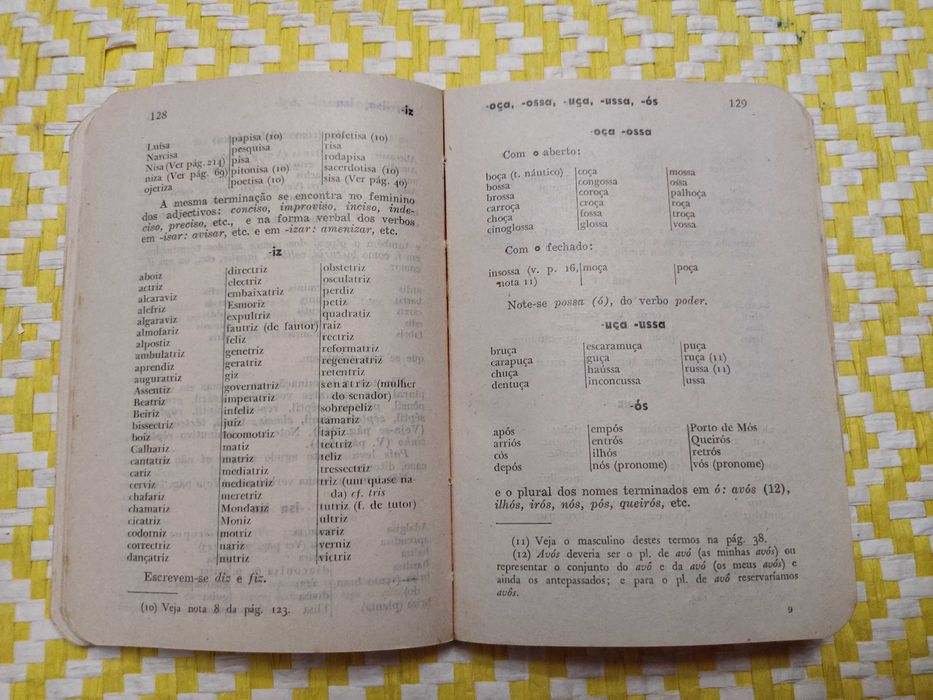 128 -iz
Luísa papisa (10) profetisa (10)
Narcisa pesquisa risa
Nisa (Ver pág. 214) pisa rodapisa
niza (Ver pág. 69) pitonisa (10) sacerdotisa (10)
ojeriza poetisa (10) sisa (Ver pág. 40)
A mesma terminação se encontra no feminino
dos adjectivos: conciso, improviso, inciso, inde-
ciso, preciso, etc., e na forma verbal dos verbos
em -isar: avisar, etc. e em -izar: amenizar, etc.
-iz
aboiz directriz obstetriz
actriz electriz osculatriz
alcaraviz embaixatriz perdiz
alefriz Esmoriz petiz
algaraviz expultriz quadratiz
almofariz fautriz (de fautor) raiz
alpostiz feliz rectriz
ambulatriz genetriz reformatriz
aprendiz geratriz regeneratriz
auguratriz giz retentriz
Assentiz governatriz senatriz (mulher
Beatriz imperatriz do senador)
Beiriz infeliz sobrepeliz
bissectriz juiz tamariz
boiz locomotriz tapiz
Calhariz matiz tectriz
cantatriz matriz teliz
cariz mediatriz tressectriz
cerviz medicatriz triz (um quase na-
chafariz meretriz da) cf. tris
chamariz Mondariz tutriz (f. de tutor)
cicatriz Moniz ultriz
codorniz motriz variz
correctriz nariz verniz
dançatriz nutriz victriz
Escrevem-se diz e fiz.
(10) Veja nota 8 da pág. 123.
-oça, -ossa, -uça, -ussa, -ós 129
-oça -ossa
Com o aberto:
boça (t. náutico) coça mossa
bossa congossa ossa
brossa coroça palhoça
carroça croça roça
choça fossa troça
cinoglossa glossa vossa
Com o fechado:
insossa (v. p. 16, moça poça
nota 11)
Note-se possa (ó), do verbo poder.
-uça -ussa
bruça escaramuça puça
carapuça guça ruça (11)
chuça haússa russa (11)
dentuça inconcussa ussa
-ós
após empós Porto de Mós
arriós entrós Queirós
cós ilhós retrós
depós nós (pronome) vós (pronome)
e o plural dos nomes terminados em ó: avós (12),
ilhós, irós, nós, pós, queirós, etc.
(11) Veja o masculino destes termos na pág. 38.
(12) Avós deveria ser o pl. de avó (as minhas avós) ou
representar o conjunto do avô e da avó (os meus avós) e
ainda os antepassados; e para o pl. de avô reservaríamos
avôs.
9